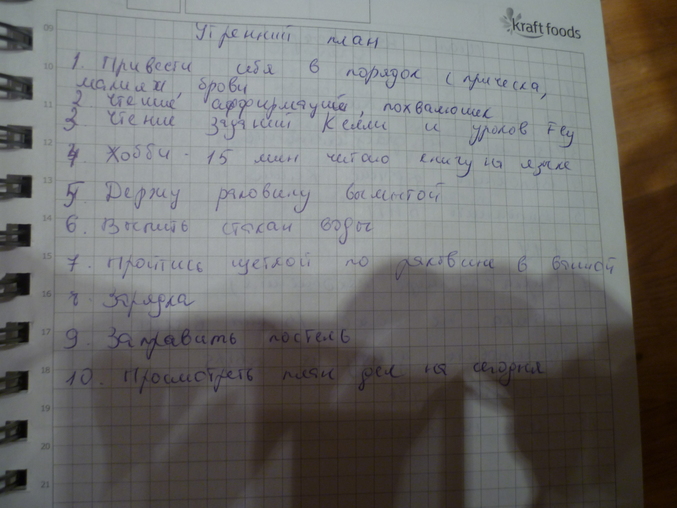 09
kraft foods
Утренний план
10
1. Привести себя в порядок (прическа,
макияж, брови
11
2 Чтение аффирмаций, похвалюшек
3. Чтение заданий Келли и уроков Fly
12
4 Хобби - 15 мин читаю книгу на языке
13
5 Держу раковину вымытой
14
6. Выпить стакан воды
15
7. Пройтись щеткой по раковине в ванной
16
8 Зарядка
17
9. Заправить постель
18
10. Просмотреть план дел на сегодня
19
20
21